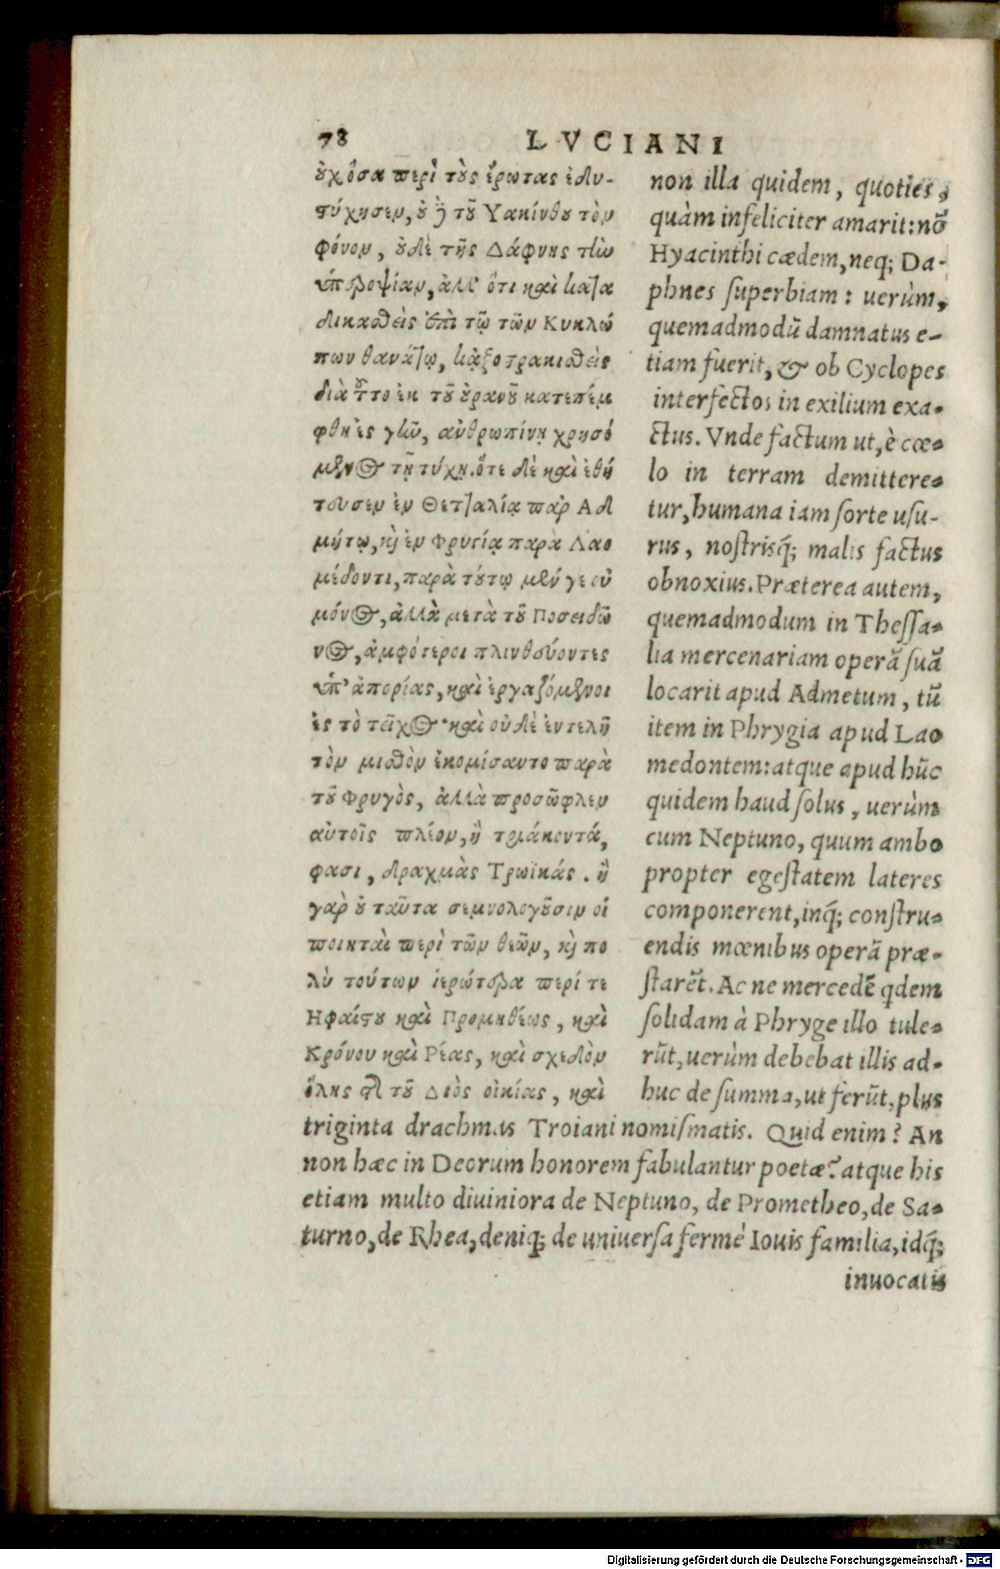 78 LVCIANI
οὐχ ὅσα περὶ τοὺς ἔρωτας ἐδυ-
στύχησεν, οὐδὲ τοῦ Υακίνθου τὸν
φόνον, οὐδὲ τῆς Δάφνης τὴν
ὑπεροψίαν, ἀλλ' ὅτι καὶ κατα
δικαθεὶς ἐπὶ τῷ τῶν Κυκλώ
πων θανάτῳ, κᾀξοστρακισθεὶς
διὰ τοῦτο ἐκ τοῦ οὐρανοῦ κατεπέμ
φθη ἐς γῆν, ἀνθρωπίνῃ χρησό
μενος τῇ τύχῃ. ὅτε δὲ καὶ ἐθή
τευσεν ἐν Θετταλίᾳ παρ Αδ
μήτῳ, καὶ ἐν Φρυγίᾳ παρὰ Λαο
μέδοντι, παρὰ τούτῳ μὲν γε οὐ
μόνος, ἀλλὰ μετὰ τοῦ Ποσειδῶ
νος, ἀμφότεροι πλινθεύοντες
ὑπ' ἀπορίας, καὶ ἐργαζόμενοι
ἐς τὸ τεῖχος· καὶ οὐδὲ ἐντελῆ
τὸν μισθὸν ἐκομίσαντο παρὰ
τοῦ Φρυγὸς, ἀλλὰ προσῶφλεν
αὐτοῖς πλέον, ἢ τριάκοντά,
φασι, δραχμὰς Τρωϊκάς. ἢ
γὰρ οὐ ταῦτα σεμνολογοῦσιν οἱ
ποιηταὶ περὶ τῶν θεῶν, καὶ πο
λὺ τούτων ἱερώτερα περί τε
Ηφαίστου καὶ Προμηθέως, καὶ
Κρόνου καὶ Ρέας, καὶ σχεδὸν
ὅλης τῆς τοῦ Διὸς οἰκίας, καὶ
non illa quidem, quoties,
quàm infeliciter amarit: nō
Hyacinthi cædem, neq; Da-
phnes superbiam: uerùm,
quemadmodū damnatus e-
tiam fuerit, & ob Cyclopes
interfectos in exilium exa-
ctus. Vnde factum ut, è cœ-
lo in terram demittere-
tur, humana iam sorte usu-
rus, nostrisq́; malis factus
obnoxius. Præterea autem,
quemadmodum in Thessa-
lia mercenariam operā suā
locarit apud Admetum, tū
item in Phrygia apud Lao
medontem: atque apud hūc
quidem haud solus, uerùm
cum Neptuno, quum ambo
propter egestatem lateres
componerent, inq́; constru-
endis mœnibus operā præ-
starēt. Ac ne mercedē qdem
solidam à Phryge illo tule-
rūt, uerùm debebat illis ad-
huc de summa, ut ferūt, plus
triginta drachmis Troiani nomismatis. Quid enim? An
non hæc in Deorum honorem fabulantur poetæ? atque his
etiam multo diuiniora de Neptuno, de Prometheo, de Sa-
turno, de Rhea, deniq; de uniuersa fermè Iouis familia, idq́;
inuocatis
Digitalisierung gefördert durch die Deutsche Forschungsgemeinschaft - DFG